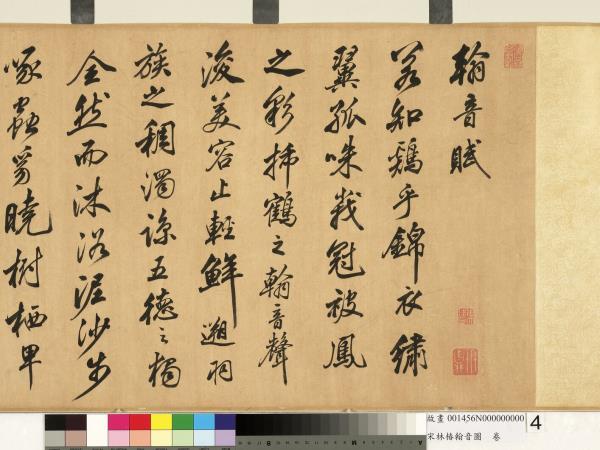 翰音賦
若知鷄乎錦衣繡
翼孤味義冠被鳳
之彩揷鶴之翰音聲
淩美容止輕鮮邈羽
族之稠濁諒五德之獨
全然而沐浴泥沙步
啄蟲豸曉樹栖卑
故畫 001456N000000000
宋林椿翰音圖 卷
4